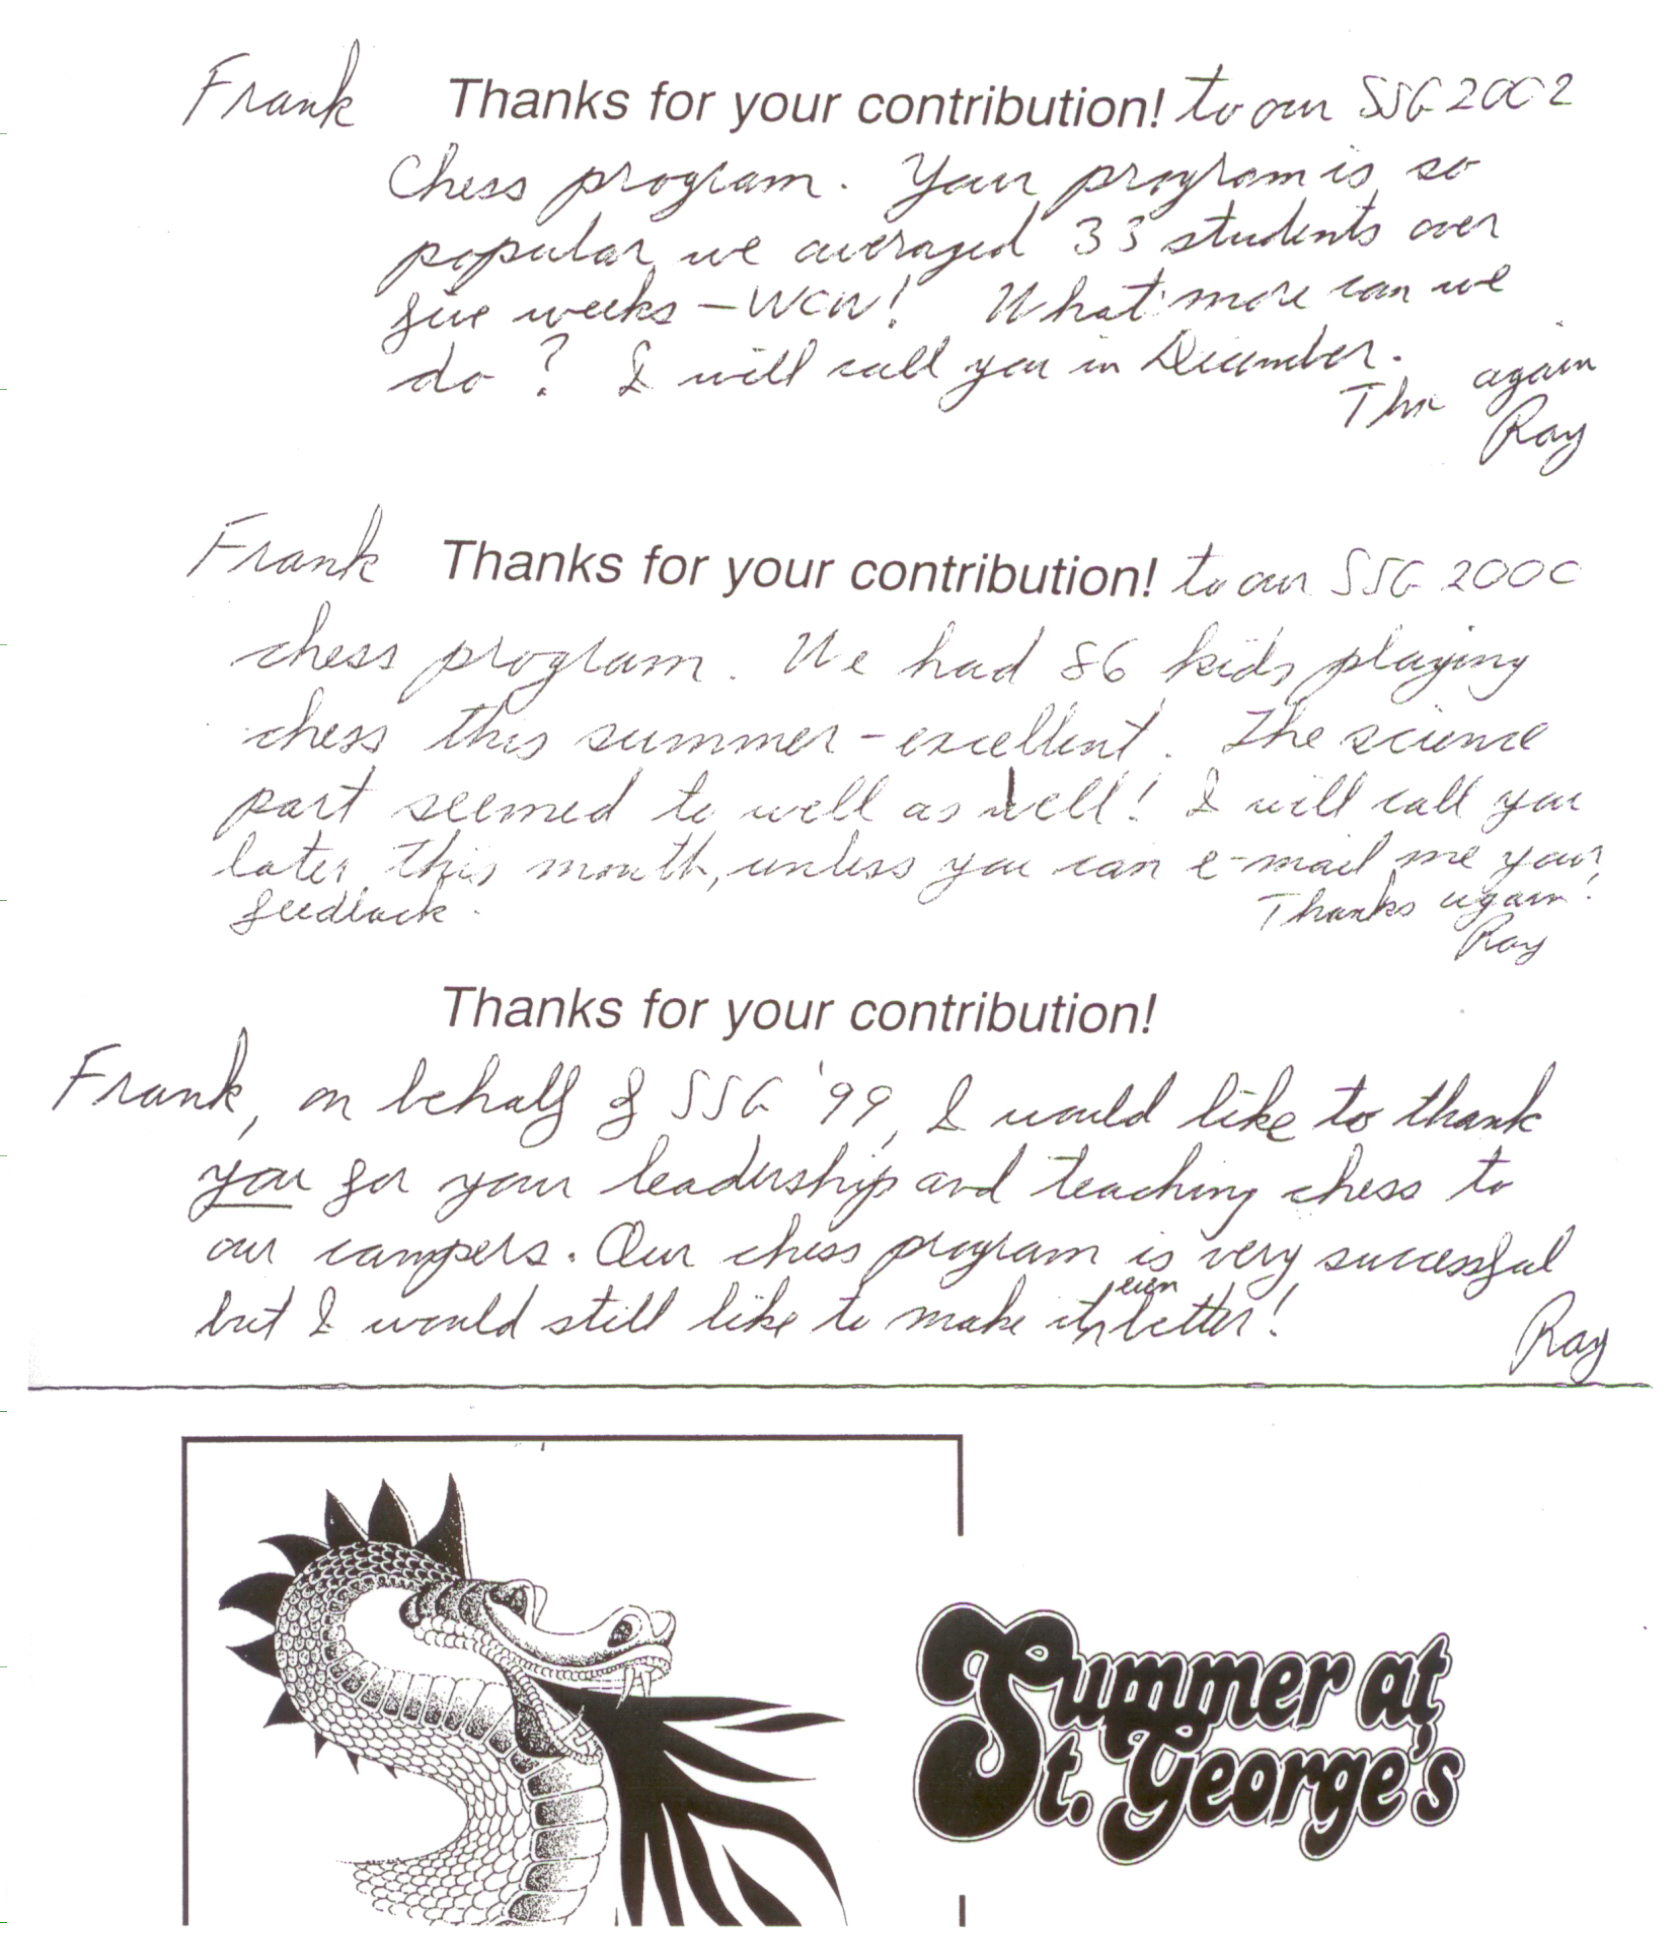 Frank Thanks for your contribution! to our SSG 2002
Chess program. Your program is so
popular we averaged 33 students over
five weeks – WOW! What more can we
do? I will call you in December.
again
Ray
Frank Thanks for your contribution! to our SSG 2000
chess program. We had 86 kids playing
chess this summer – excellent. The science
part seemed to well as well! I will call you
later this month, unless you can e-mail me your
feedback. Thanks again!
Ray
Thanks for your contribution!
Frank, on behalf of SSG '99, I would like to thank
you for your leadership and teaching chess to
our campers. Our chess program is very successful
but I would still like to make it even better!
Ray
Summer at
St. George's